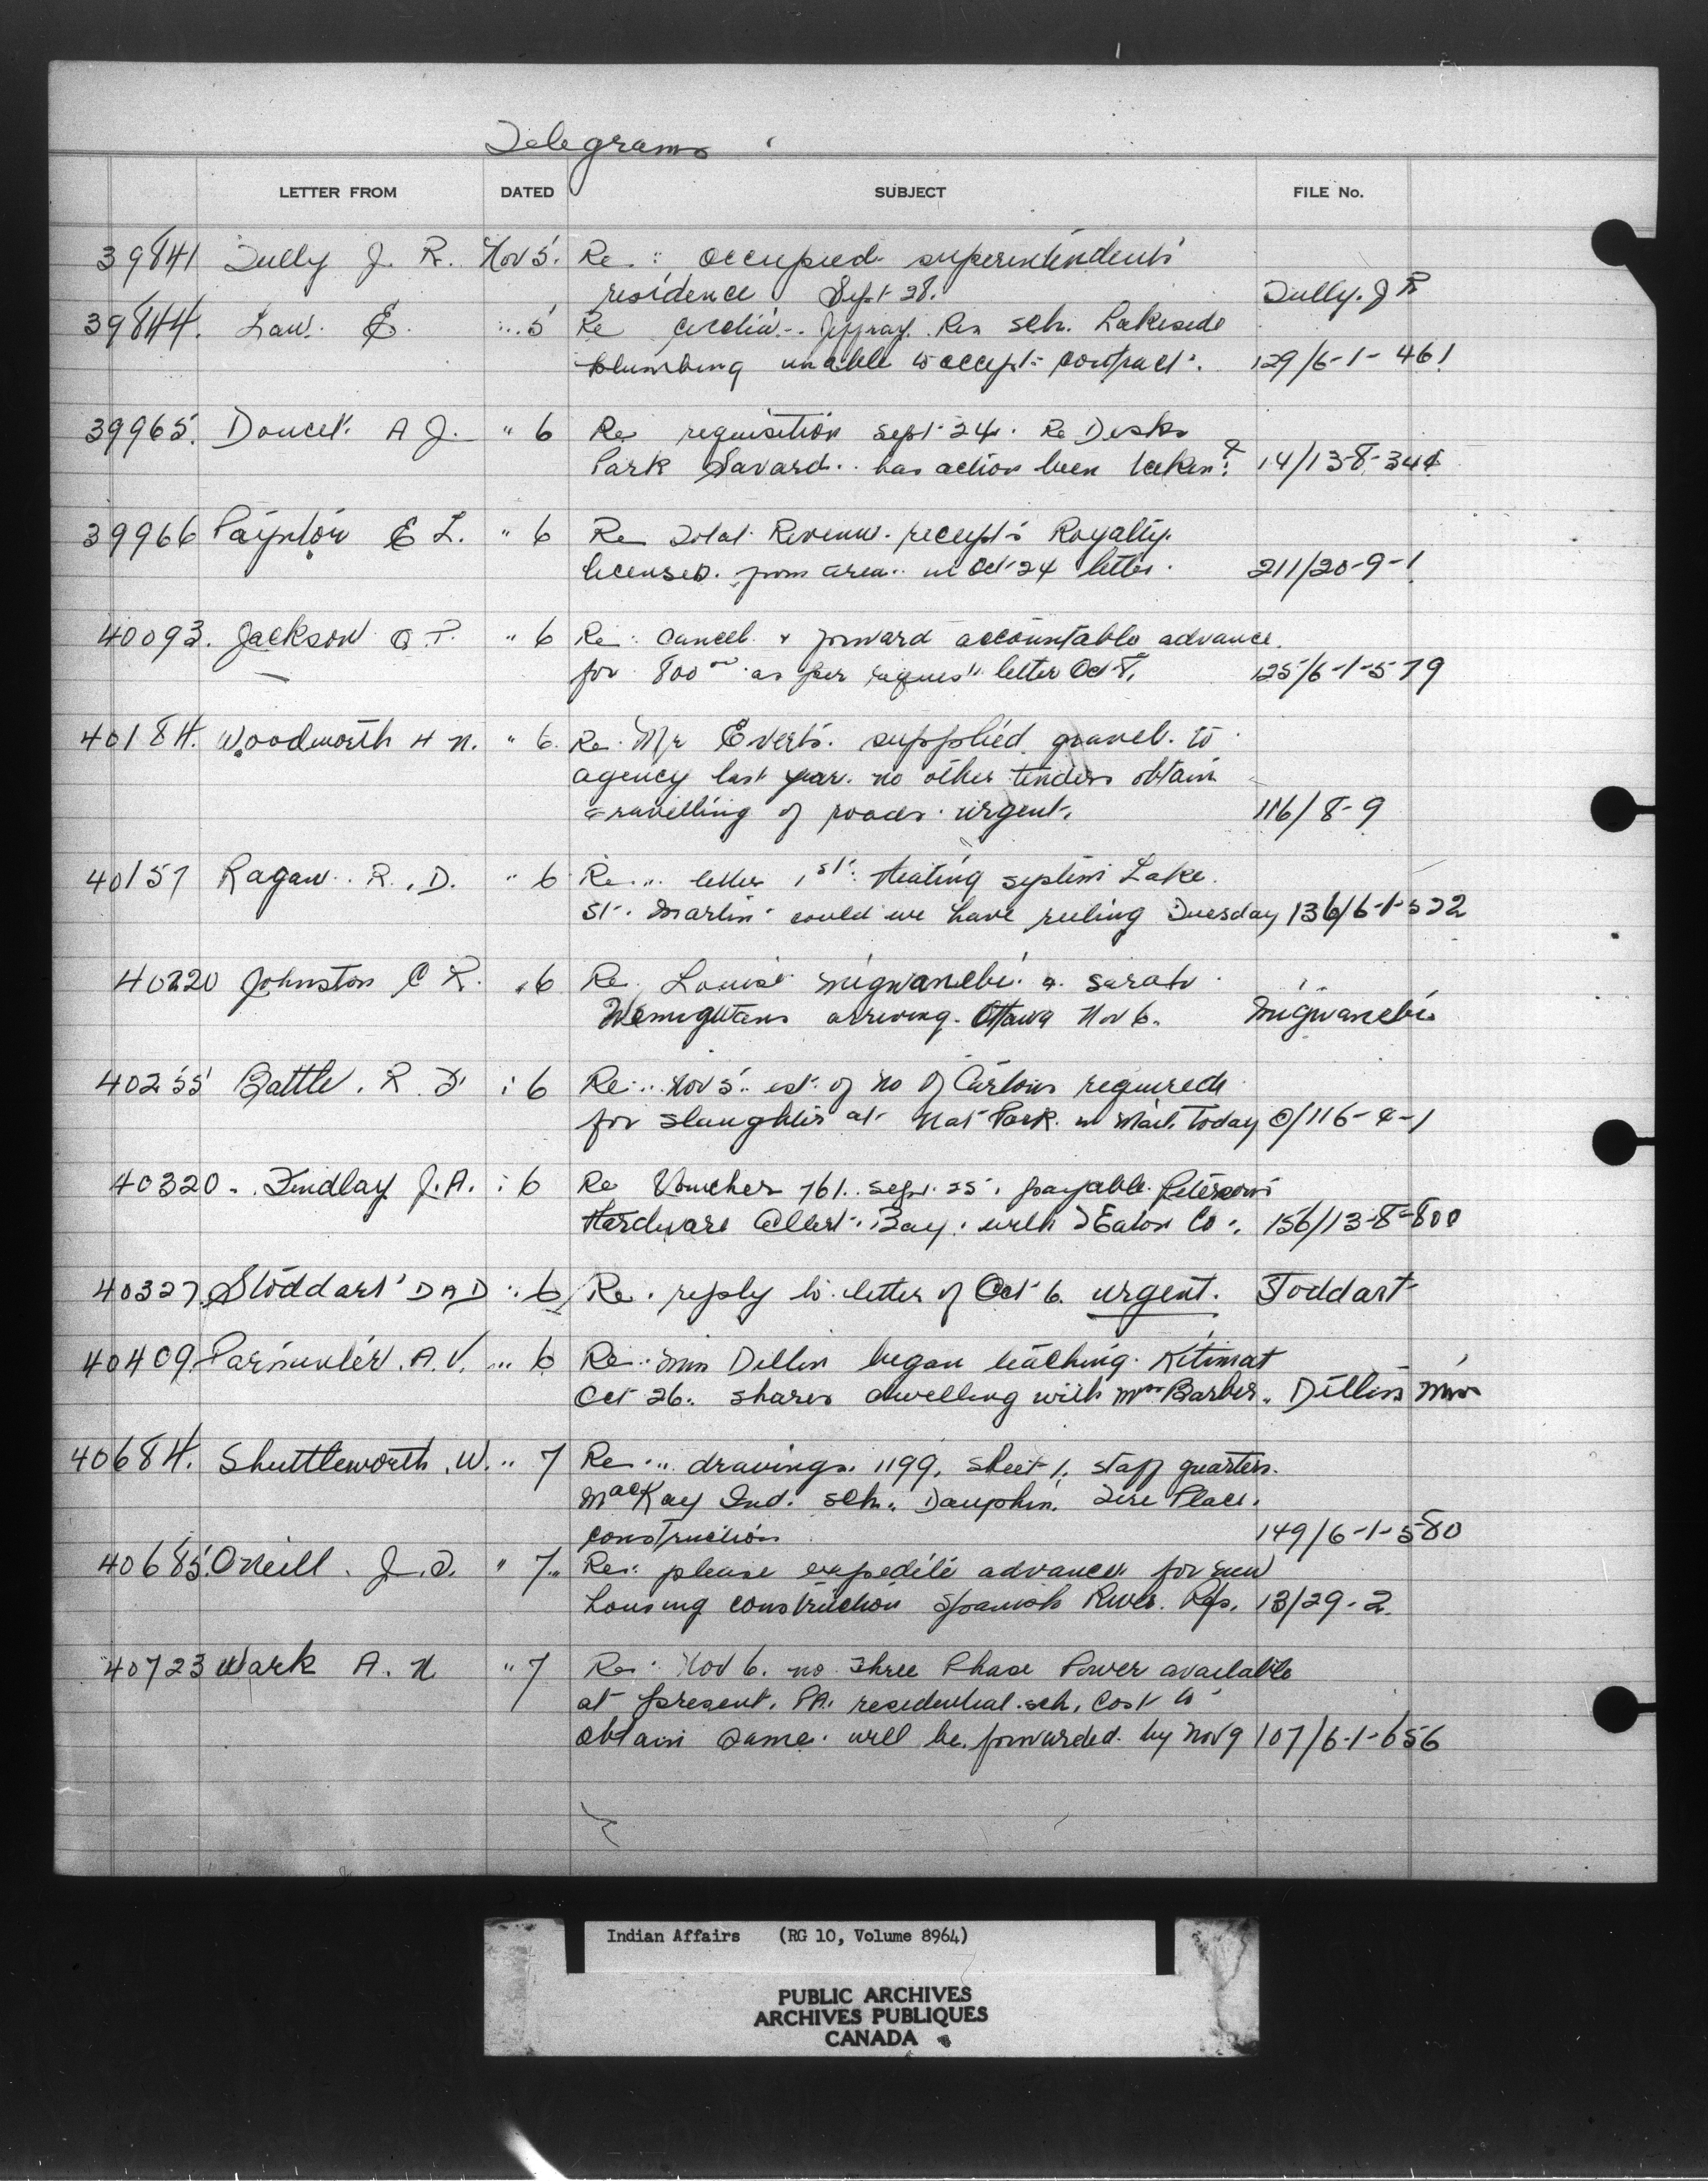 Telegrams
LETTER FROM DATED SUBJECT FILE No.
39841 Tully J. R. Nov 5. Re: occupied superintendents
residence Sept 28. Tully. J R
39844. Law. E. " 5 Re Cecilia Jeffray Res sch. Lakeside
plumbing unable to accept contract. 129/6-1-461
39965. Doucet. A J. " 6 Re requisition Sept 24. Re Desks
Park Savard.. has action been taken? 14/13-8-34
39966 Paynter E L. " 6 Re Total Revenue. receipts Royalty.
licenses. from area.. in Oct 24 letter. 211/20-9-1
40093. Jackson " 6 Re: cancel & forward accountable advance
for 800 as per request letter Oct 8. 125/6-1-579
40184. Woodworth H N. " 6. Re. Mr Everts. supplied gravel. to
agency last year. no other tenders obtain
gravelling of roads. urgent. 116/8-9
40157 Ragan.. R. D. " 6 Re.. letter 1st. Heating system Lake.
St. Martin could we have ruling Tuesday 136/6-1-522
40220 Johnston C R. " 6 Re. Louise Migwanebi. & Sarah
arriving. Ottawa Nov 6. Migwanebi
40255 Battle. R F " 6 Re.. Nov 5.. est. of no of Cartons required
for slaughter at Nat Park. in Mail today @/116-4-1
40320. Findlay J.A. " 6 Re Voucher 761.. Sept. 25. payable. Petersons
Hardware Alert. Bay. with T Eaton Co. 156/13-8-800
40327. Stoddart D A D " 6 Re. reply to letter of Oct 6. urgent. Stoddart
40409 Parminter. A.V. " 6 Re.. Miss Dillin began teaching. Kitimat
Oct 26. shares dwelling with Mrs Barber. Dillin Miss
40684. Shuttleworth. W. " 7 Re... drawings. 1199, sheet 1. staff quarters.
MacKay Ind. sch. Dauphin. Fire Place.
construction 149/6-1-580
40685. ONeill. J. " 7.. Re: please expedite advances for new
housing construction Spanish River. Res. 13/29-2.
40723 Wark A. N " 7 Re: Nov 6. no Three Phase Power available
at present. P.A. residential. sch. Cost to
obtain same. will be. forwarded. by Nov 9 107/6-1-656
Indian Affairs (RG 10, Volume 8964)
PUBLIC ARCHIVES
ARCHIVES PUBLIQUES
CANADA